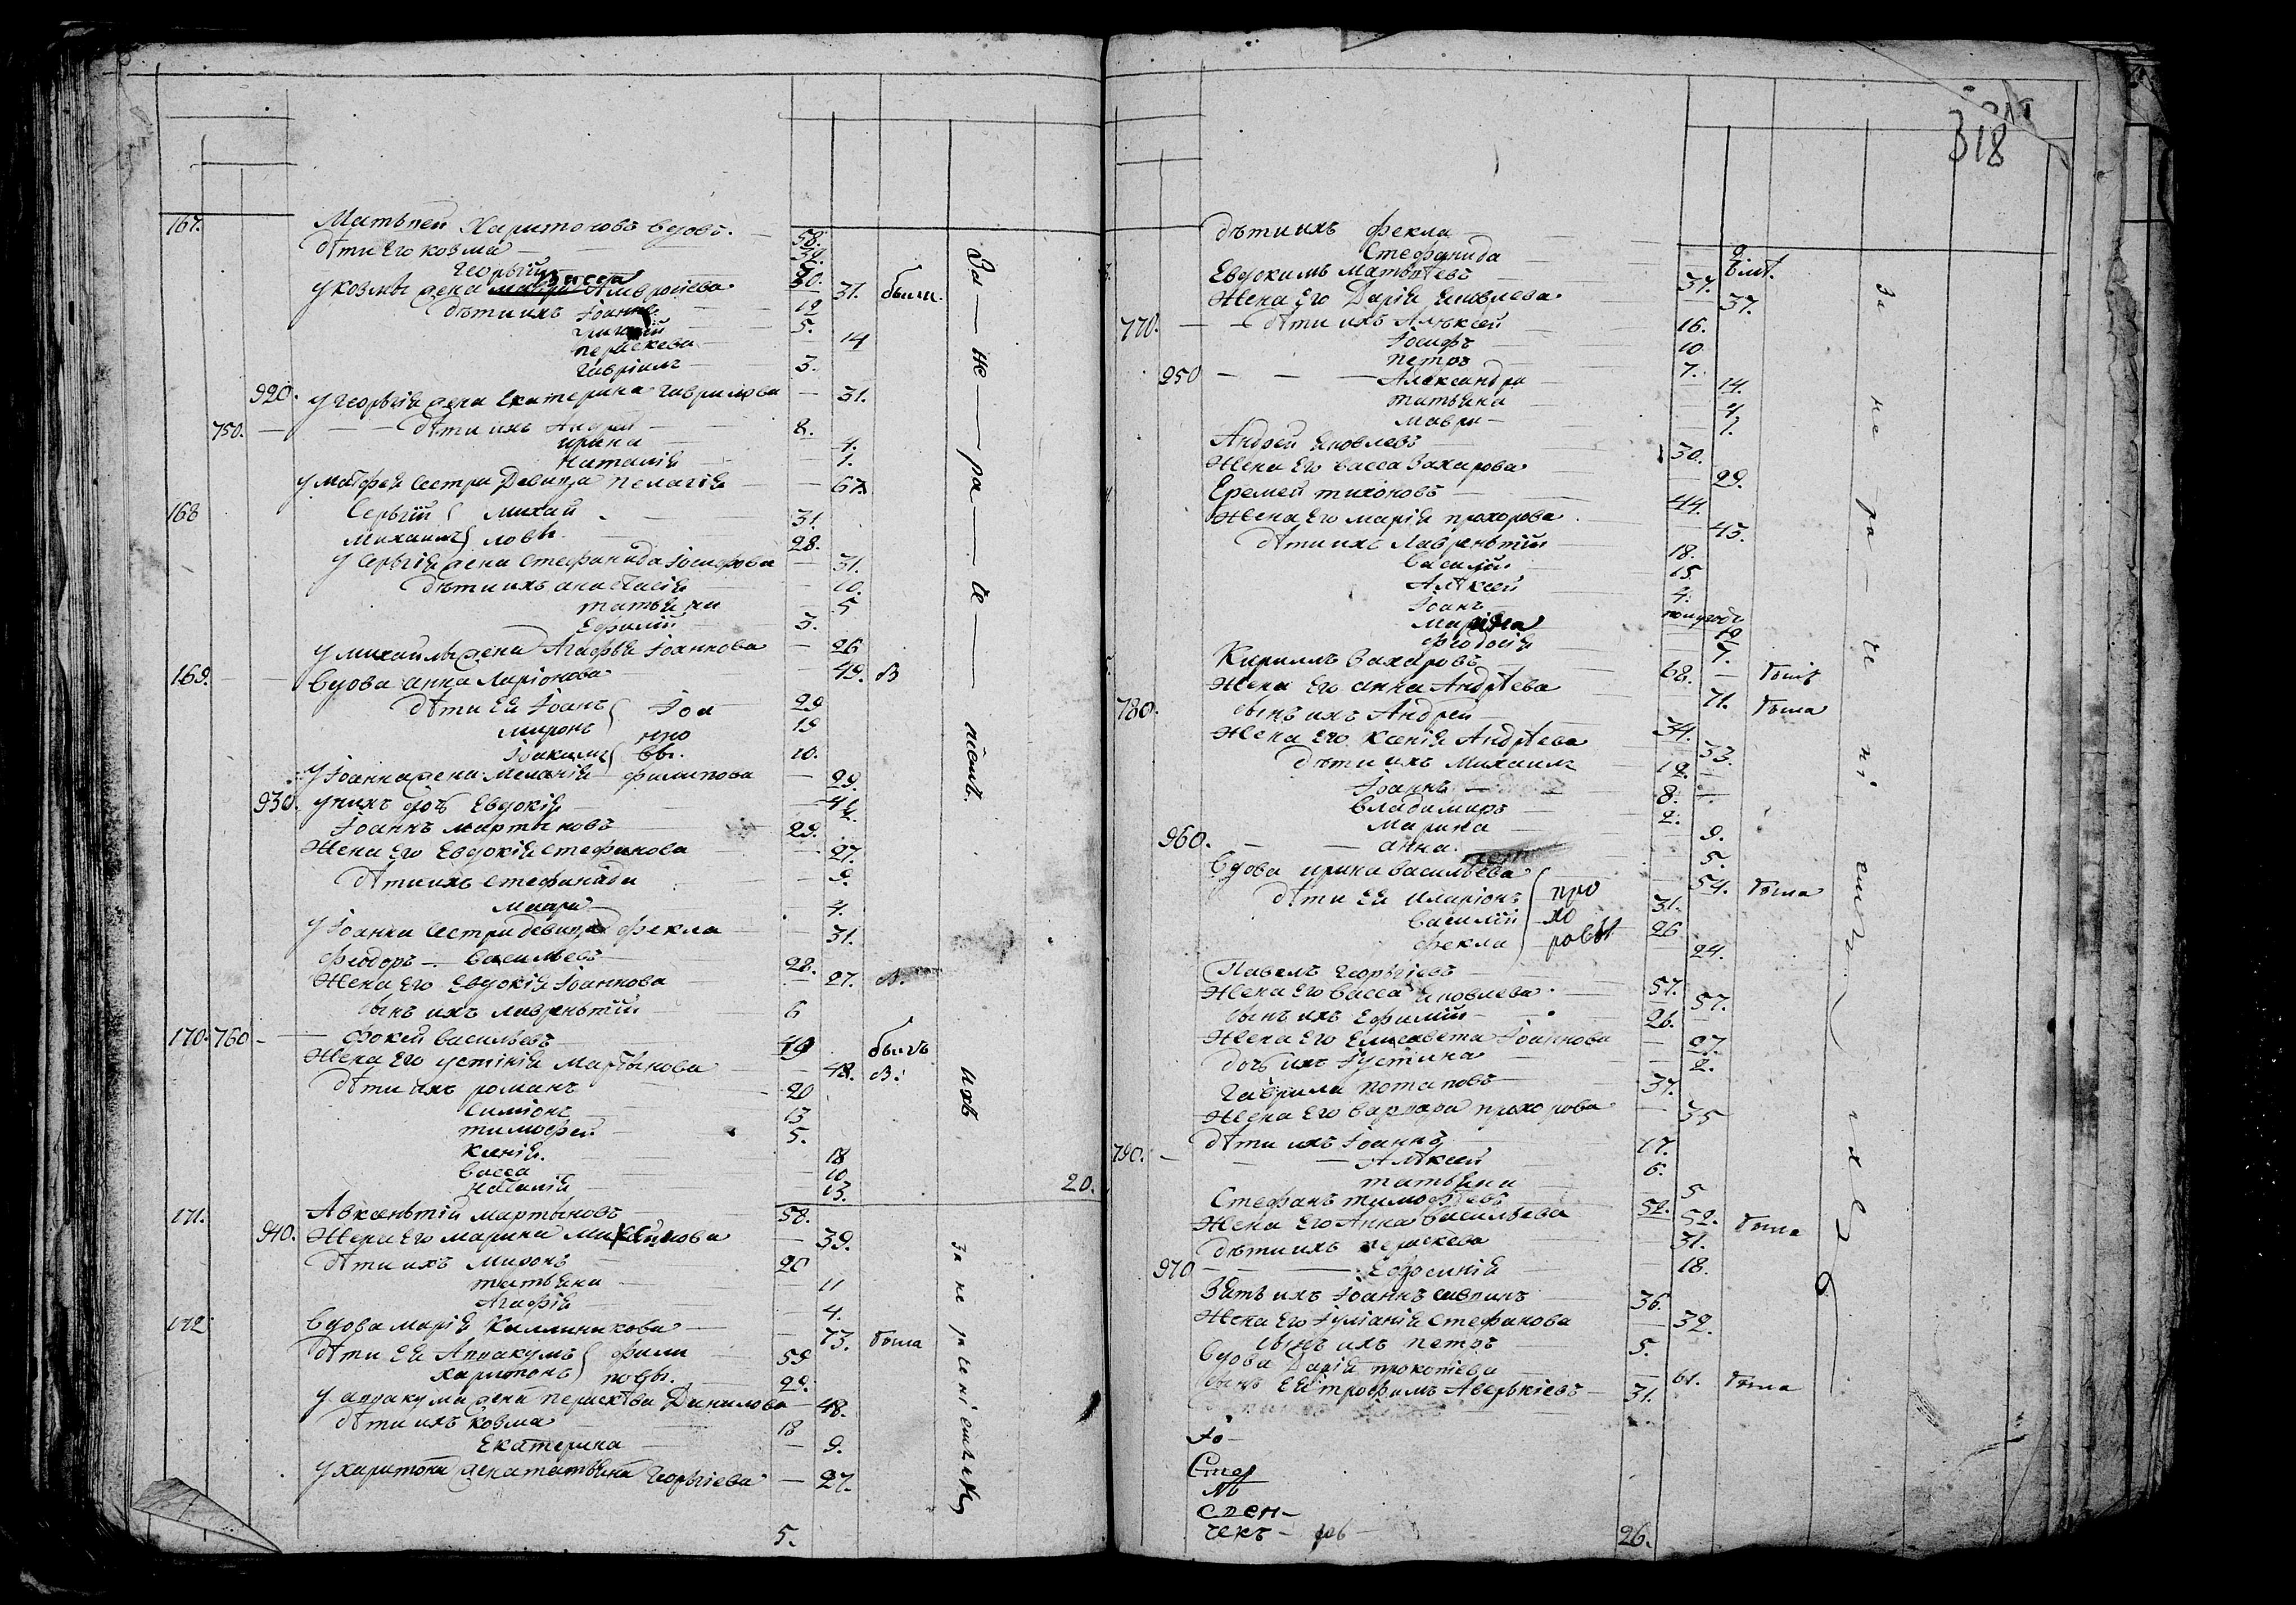 167. Матьвей Харитоновъ вдовъ. 58.
дѣти Его козма
Георьгiй 30.
у козмы жена Васса Амвросiева 31. были
дѣти ихъ Iоаннъ 12
Григорiй 5.
перескева 14
Гаврiилъ 3.
920. у Георьгiя жена Екатерина Гаврилова 31.
750. дѣти ихъ Андрей 8.
ирина 4.
Наталiя 1.
у Матфея сестра Девица пелагiя 67.
168 Серьгiй Михай 31.
Михаилъ ловы 28.
у Серьгiя жена Стефанида Iосифова 31.
дѣти ихъ анастасiя 10.
татьяна 5
Ефимiй 3.
у михаилы жена Агафья Iоаннова 26
169. вдова анна Ларiонова 49. в
дѣти Ея Iоанъ Iоа 29
миронъ нно 19
Iоакимъ вы. 10.
у Iоанна жена меланiя филипова 29.
930. у нихъ дочь Евдокiя
Iоаннъ мартыновъ 29.
жена Его Евдокiя стефанова 27.
дѣти ихъ стефанида 9.
мавра 4.
у Iоанна сестра девица фекла 31.
Феодоръ Васильевъ 28.
жена Его Евдокiя Iоаннова 27. в.
сынъ ихъ лаврентiй 6
170. 760 Фокей васильевъ 49 былъ
жена Его устiнiя Мартынова 48. в.
дѣти ихъ романъ 20
симiонъ 13
тимофей 5.
ксенiя. 18
васса 10
наталiя 13.
20.
171. Авксеньтiй мартыновъ 58.
940. жена Его марина Михайлова 39.
дѣти ихъ миронъ 20
татьяна 11
Агафiя 4.
172 вдова марiя Каллиникова 73. была
дѣти Ея Авдакумъ фили 59
харитонъ повы. 29.
у авдакума жена перасква Данилова 48.
дѣти ихъ козма 18
Екатерина 9.
у харитона жена татьяна Георьгiева 27.
5.
За не ра че нiемъ ихъ
За не раченiемъ ихъ
318
дѣти ихъ фекла 9
Стефанида
Евдокимъ Матвѣевъ 37.
жена Его Дарiя Яковлева 37.
770. дѣти ихъ Алѣксей 16.
Iосифъ 10
петръ 7.
950 Александра 14.
татьяна 4.
мавра 1.
Андрей Яковлевъ 30.
жена Его васса Захарова 29.
Еремей тихоновъ 44.
жена Его марiя прохорова 45.
дѣти ихъ Лавреньтiй 18.
василiй 15.
Алѣксей 4.
Iоанъ полугода
Марина 10
феодосiя 7.
Кирилъ Захаровъ 68. былъ
жена Его анна Андрѣева 71. была
780. сынъ ихъ Андрей 34.
жена Его ксенiя Андрѣева 33.
дѣти ихъ михаилъ 12.
Iоаннъ 8.
владимиръ 2.
марина 9.
960. анна. 5.
вдова ирина васильева 54. была
дѣти Ея иларiонъ про 31.
василiй хо 26
фекла ровы 24.
Павелъ Георьгiевъ 57.
жена Его васса Яковлева 57.
сынъ ихъ Ефимiй 26.
жена Его Елисавета Iоаннова 27.
дочь ихъ Iустина 2.
Гаврила потаповъ 37.
жена Его варвара прохорова 35
790. дѣти ихъ Iоаннъ 17.
Алѣксей 6.
татьяна 5
Стефанъ тимофѣевъ 52.
жена Его Анна васильева 52. была
дѣти ихъ перескева 31.
970 Евфросинiя 18.
Зять ихъ Iоаннъ 36.
жена Его Iулiанiя Стефанова 32.
сынъ ихъ петръ 5.
вдова Дарiя прокопiева 61. была
сынъ Ея трофимъ Аверькiевъ 31.
26.
За не ра че нi емъ ихъ